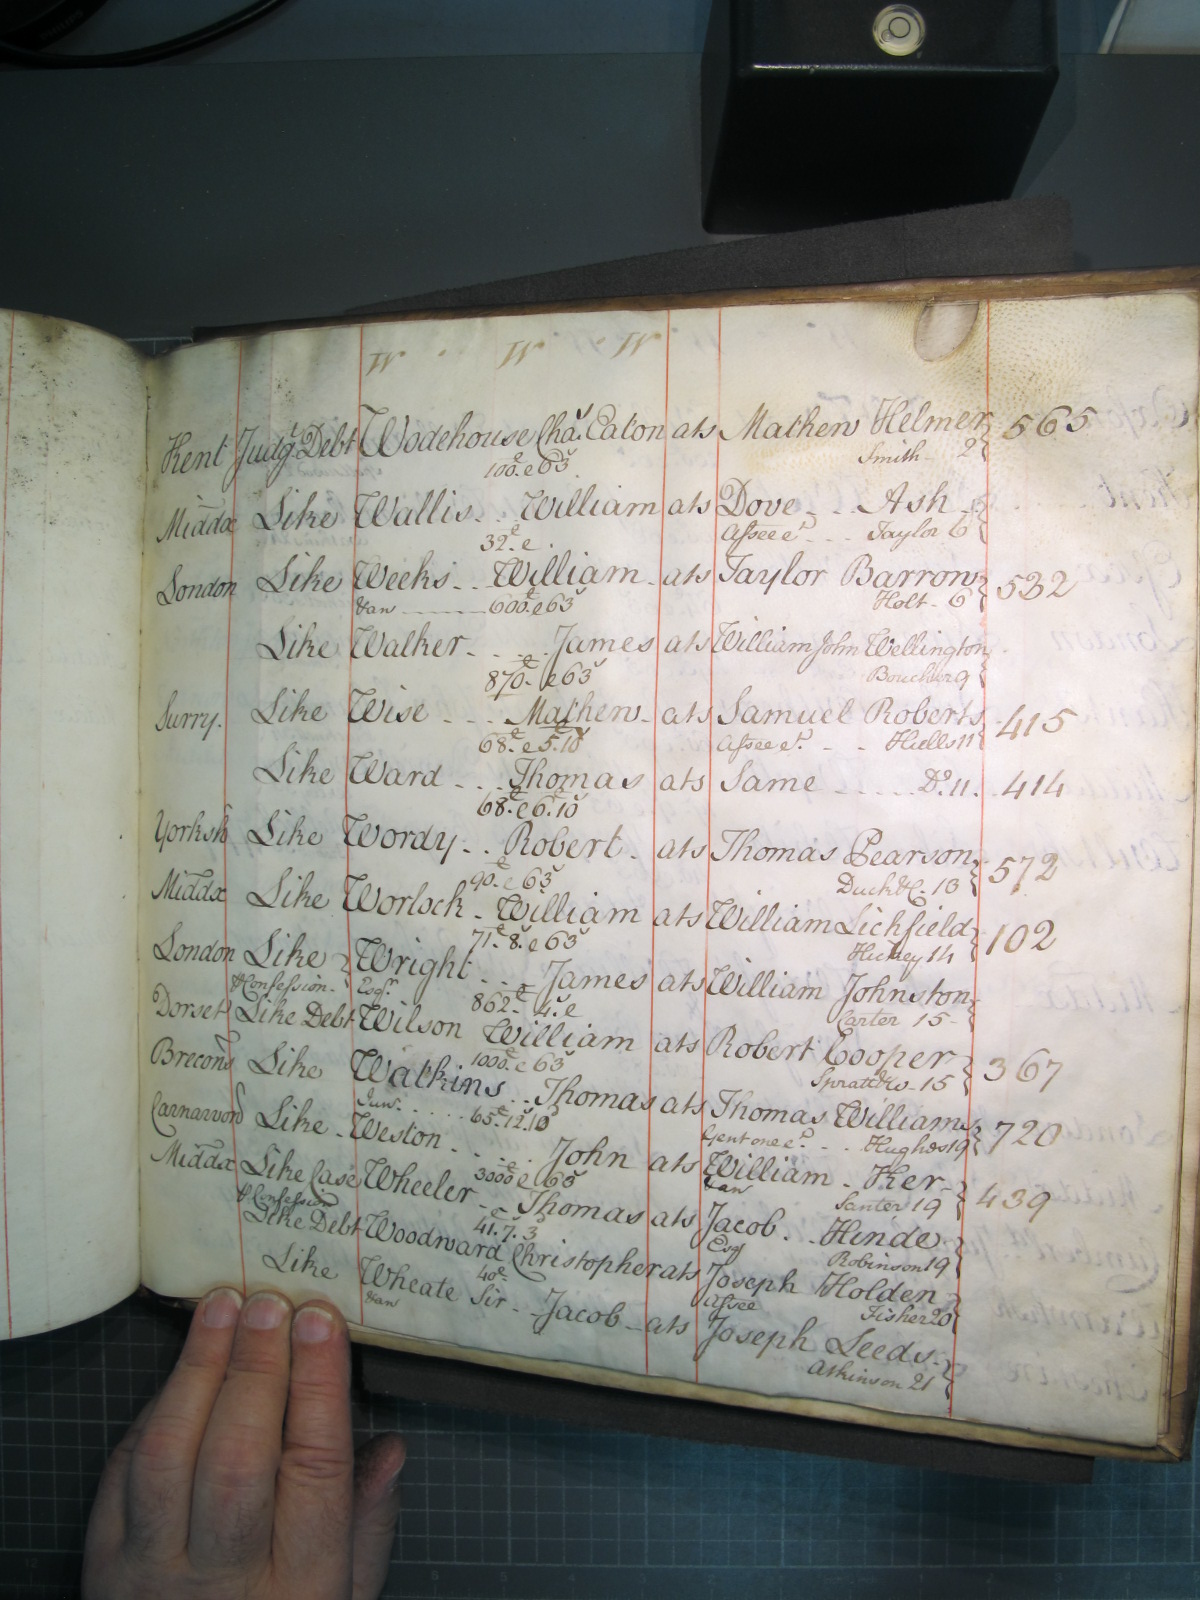 W W W
Kent Judgt Debt Wodehouse Chas. Eaton ats Mathew Helmer 565
100£ e 63s Smith 2
Middx Like Wallis William ats Dove Ash
32£ e Assee et Taylor 6
London Like Weeks William ats Taylor Barrow 532
Van 600£ e 63s Holt 6
Like Walker James ats William John Wellington
870£ e 63s Boucher 9
Surry Like Wise Mathew ats Samuel Roberts 415
68£ e 5.10s Assee et Hulls 11
Like Ward Thomas ats Same Do. 11. 414
68£ e 6.10s
Yorksh Like Wordy Robert ats Thomas Pearson 572
90£ e 63s Duck &C. 13
Middx Like Worlock William ats William Lichfield 102
71£. 8s. e 63s Hickey 14
London Like Wright James ats William Johnston
& Confession Esqr. 862£ 4s. e Carter 15
Dorset Like Debt Wilson William ats Robert Cooper 367
1000£ e 63s Spratt &Co 15
Brecond Like Watkins Thomas ats Thomas Williams 720
Junr. 65£.12.10s Gent one et Hughes 19
Carnarvon Like Weston John ats William Ker 439
3000£ e 63s Van Santer 19
Middx Like Case Wheeler Thomas ats Jacob Hinde
& Confession 41£.7.3 Esq Robinson 19
Like Debt Woodward Christopher ats Joseph Holden
40£ Assee Fisher 20
Like Wheate Sir Jacob ats Joseph Seeds
Van Atkinson 21